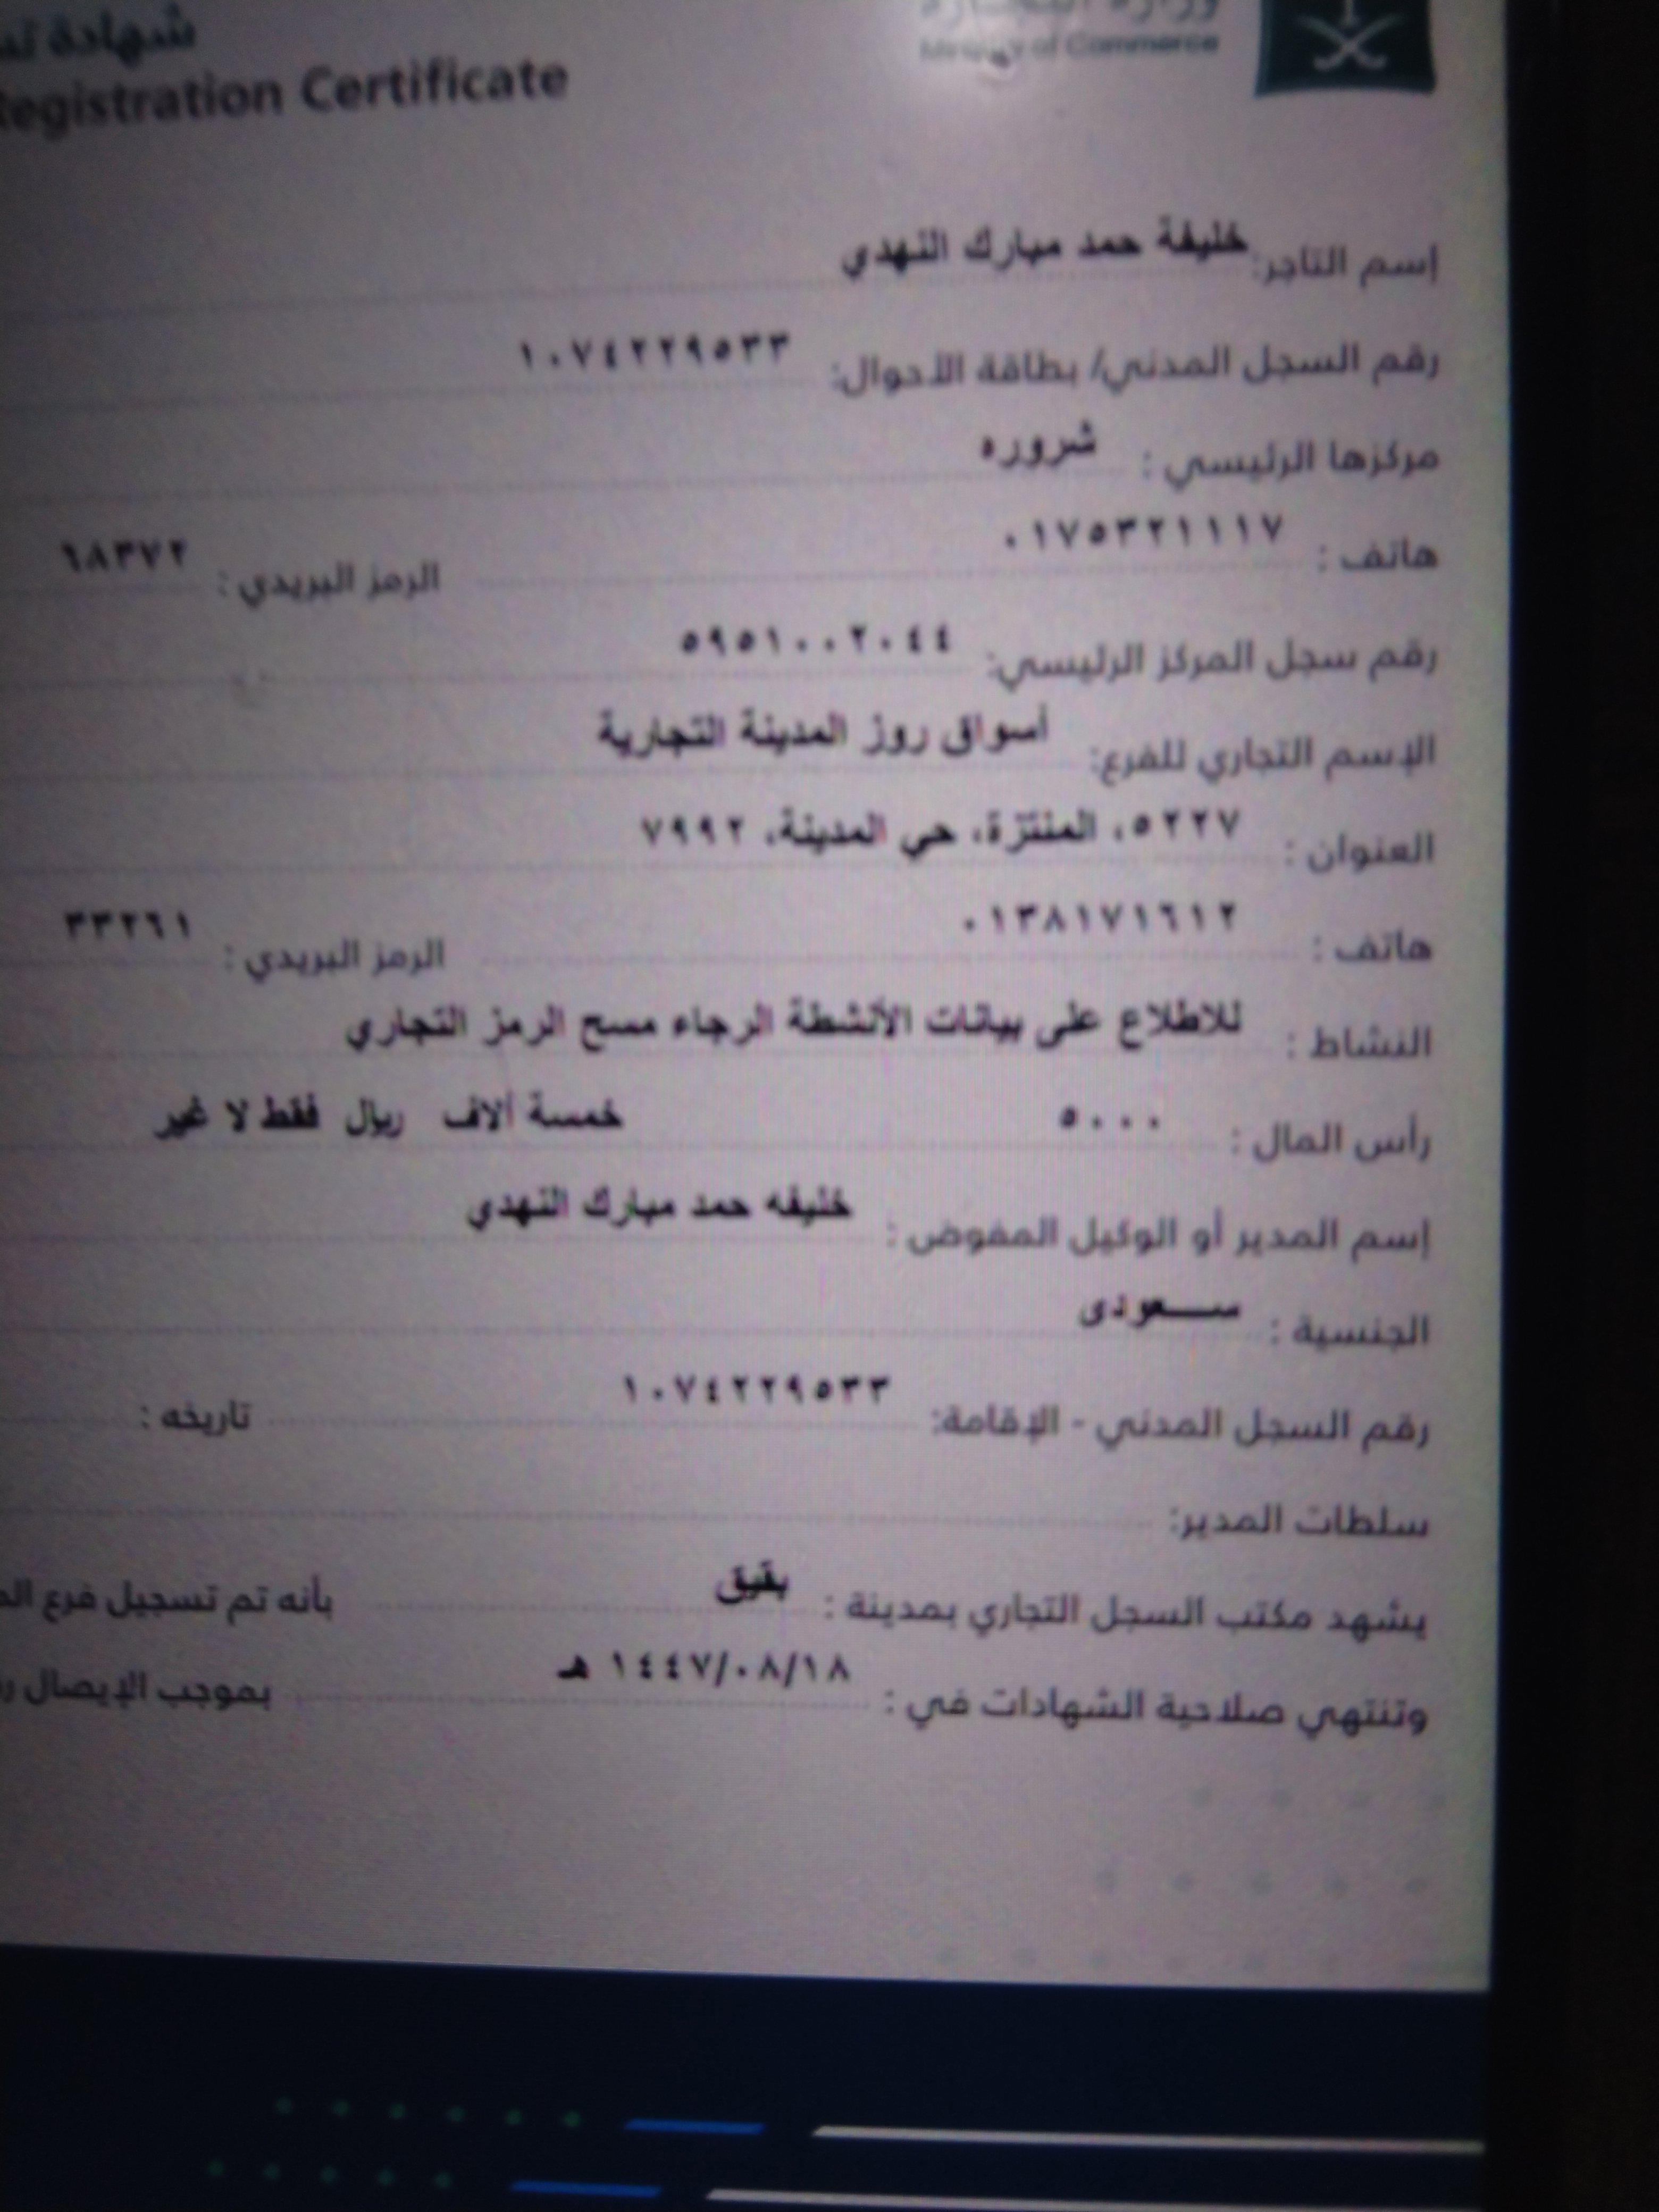 وزارة التجارة
Ministry of Commerce
شهادة
Registration Certificate
إسم التاجر: خليفة حمد مبارك النهدي
رقم السجل المدني/ بطاقة الأحوال: ١٠٧٤٢٢٩٥٣٣
مركزها الرئيسي : شروره
هاتف : ٠١٧٥٣٢١١١٧ الرمز البريدي : ٦٨٣٧٢
رقم سجل المركز الرئيسي: ٥٩٥١٠٠٢٠٤٤
الإسم التجاري للفرع: أسواق روز المدينة التجارية
العنوان : ٥٢٢٧، المنتزة، حي المدينة، ٧٩٩٢
هاتف : ٠١٣٨١٧١٦١٢ الرمز البريدي : ٣٣٢٦١
النشاط : للاطلاع على بيانات الأنشطة الرجاء مسح الرمز التجاري
رأس المال : ٥٠٠٠ خمسة ألاف ريال فقط لا غير
إسم المدير أو الوكيل المفوض : خليفه حمد مبارك النهدي
الجنسية : سعودى
رقم السجل المدني - الإقامة: ١٠٧٤٢٢٩٥٣٣ تاريخه :
سلطات المدير:
يشهد مكتب السجل التجاري بمدينة : بقيق بأنه تم تسجيل فرع
وتنتهي صلاحية الشهادات في : ١٤٤٧/٠٨/١٨ هـ بموجب الإيصال